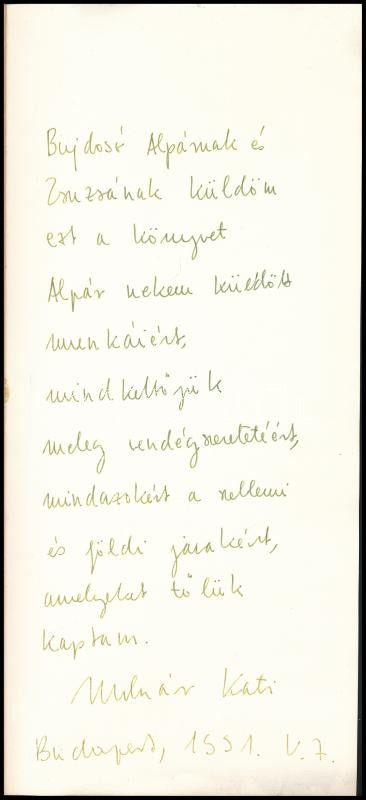 Bujdosó Alpárnak és
Zsuzsának küldöm
ezt a könyvet
Alpár nekem küldött
munkáiért,
mindkettőjük
meleg vendégszeretetéért,
mindazokért a szellemi
és földi javakért,
amelyeket tőlük
kaptam.
Molnár Kati
Budapest, 1991. V. 7.